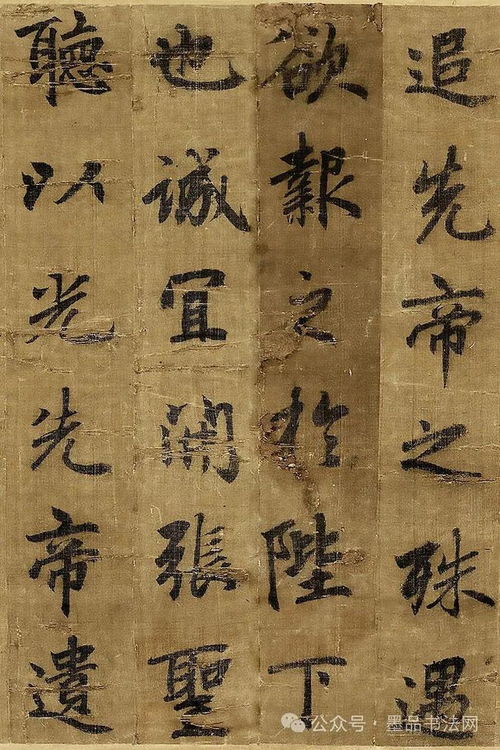 追先帝之殊遇
欲報之於陛下
也誠宜開張聖
聽以光先帝遺
公众号·墨品书法网